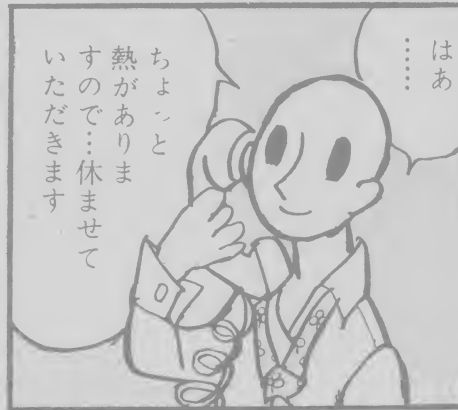 はあ
……
ちょっと
熱がありま
すので…休ませて
いただきます